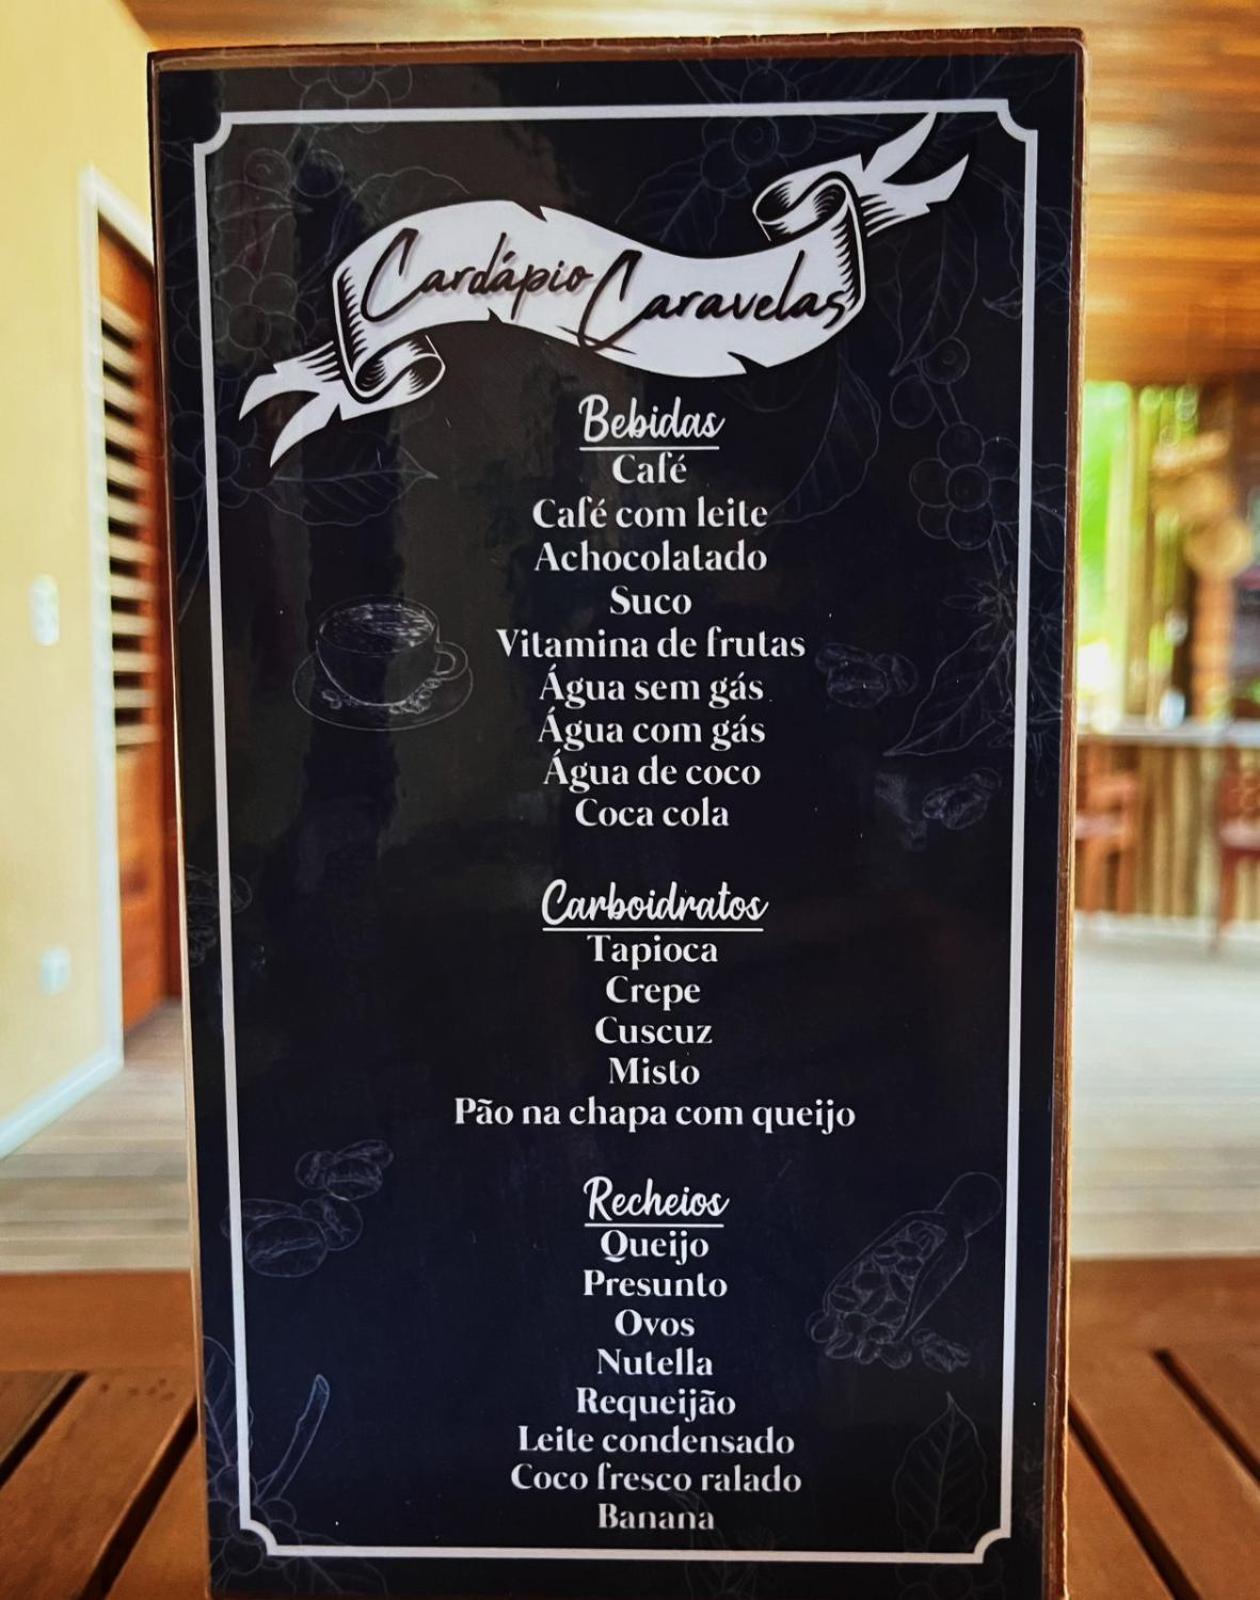 Cardápio Caravelas
Bebidas
Café
Café com leite
Achocolatado
Suco
Vitamina de frutas
Água sem gás
Água com gás
Água de coco
Coca cola
Carboidratos
Tapioca
Crepe
Cuscuz
Misto
Pão na chapa com queijo
Recheios
Queijo
Presunto
Ovos
Nutella
Requeijão
Leite condensado
Coco fresco ralado
Banana